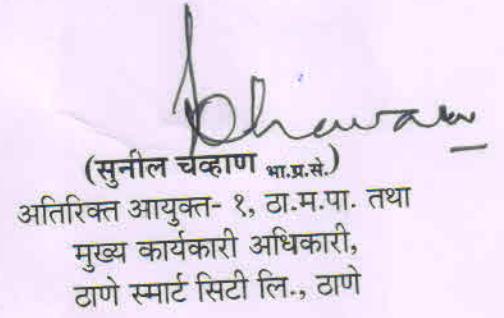 (सुनील चव्हाण भा.प्र.से.)
अतिरिक्त आयुक्त- १, ठा.म.पा. तथा
मुख्य कार्यकारी अधिकारी,
ठाणे स्मार्ट सिटी लि., ठाणे